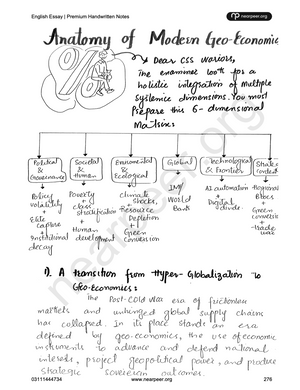 English Essay | Premium Handwritten Notes
nearpeer.org
Anatomy of Modern Geo-Economic
Dear CSS warriors,
The examiner looks for a
holistic integration of multiple
Systemic dimensions. You must
Prepare this 6-dimensional
Matrix:
Political & Governance
Societal & Human
Environmental & Ecological
Global
Technological & Frontiers
State context
Policy volatility + Elite capture + Institutional decay
Poverty + class stratification + Human development
climate shocks, Resource Depletion + Green conversion
IMF World Bank
AI automation + Digital divide
Regional + Green conversion + trade war
1). A transition from Hyper-Globalization to
Geo-Economics:
The Post-Cold War era of frictionless
markets and unhinged global supply chains
has collapsed. In its place stands an era
defined by geo-economics, the use of economic
instruments to advance and defend national
interests, project geopolitical power, and produce
strategic sovereign outcomes.
03111444734
www.nearpeer.org
276